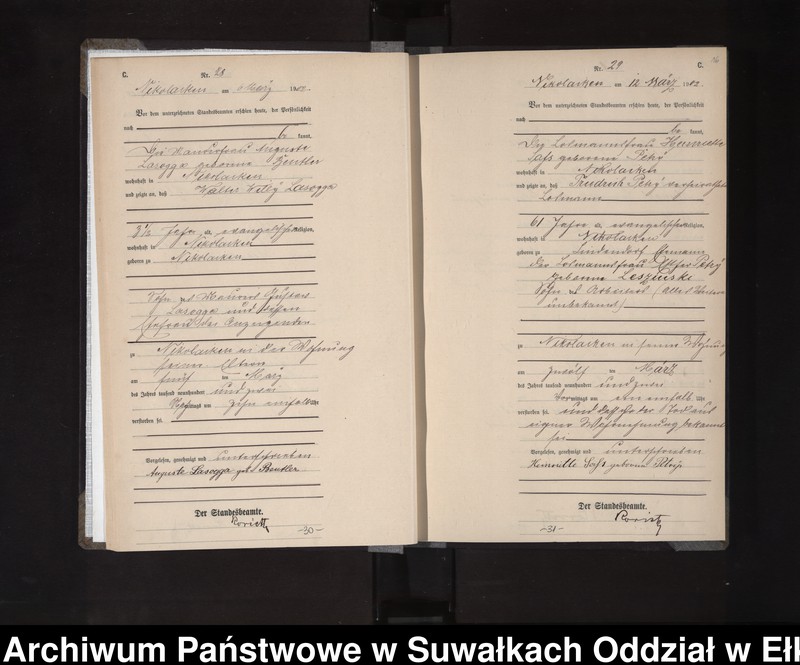 C.
Nr. 28
Nikolaiken am März 1902
Vor dem unterzeichneten Standesbeamten erschien heute, der Persönlichkeit
nach
be kannt,
Die Maurerfrau Auguste
Lasogga geborene Bentler
wohnhaft in Nikolaiken
und zeigte an, daß Walter Willy Lasogga
3 1/2 Jahre a. evangelischer Religion,
wohnhaft in Nikolaiken
geboren zu Nikolaiken
Sohn des Maurers Gustav
Lasogga und dessen
Ehefrau der Anzeigenden
zu Nikolaiken in der Wohnung
seiner Eltern
am fünf ten März
des Jahres tausend neunhundert und zwei
mittags um zehn einhalb Uhr
verstorben sei.
Vorgelesen, genehmigt und unterschrieben
Auguste Lasogga geb. Bentler
Der Standesbeamte.
-30-
Nr. 29
C.
Nikolaiken am 12 März 1902
Vor dem unterzeichneten Standesbeamten erschien heute, der Persönlichkeit
nach
be kannt,
Die Losmannsfrau Henriette
geborene
wohnhaft in Nikolaiken
und zeigte an, daß Friedrich
Losmann
61 Jahre a. evangelischer Religion,
wohnhaft in Nikolaiken
geboren zu Lindendorf Ehemann
der Losmannsfrau
geborene Leszinski
Sohn des Arbeiters
unbekannt)
zu Nikolaiken in seiner Wohnung
am zwölf ten März
des Jahres tausend neunhundert und zwei
Vormittags um ein einhalb Uhr
verstorben sei. und daß ihr der Tod aus
eigener Wissenschaft bekannt
sei
Vorgelesen, genehmigt und unterschrieben
Henriette geborene
Der Standesbeamte.
-31-
Archiwum Państwowe w Suwałkach Oddział w Ełk